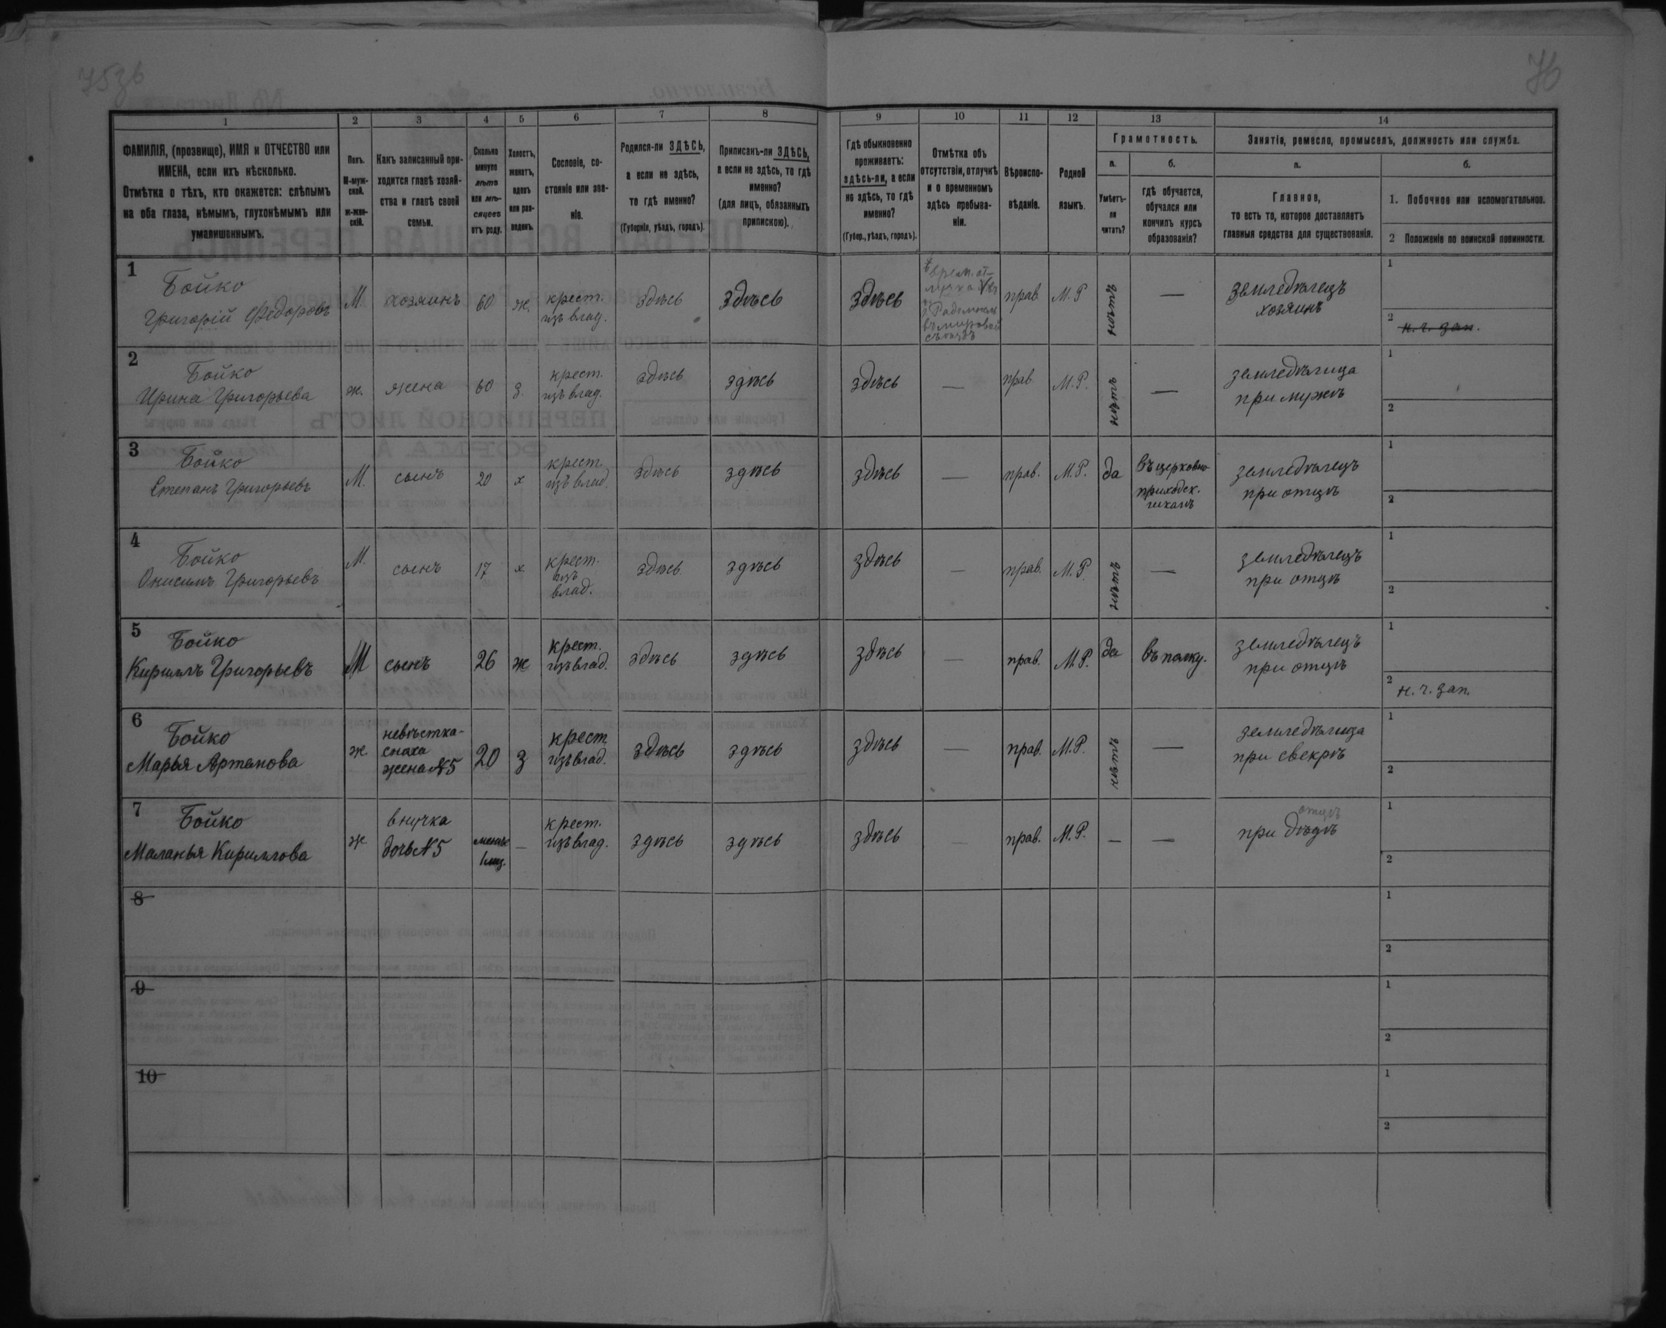 75зв
76
1 2 3 4 5 6 7 8 9 10 11 12 13 14
ФАМИЛІЯ, (прозвище), ИМЯ и ОТЧЕСТВО или
ИМЕНА, если ихъ нѣсколько.
Отмѣтка о тѣхъ, кто окажется: слѣпымъ
на оба глаза, нѣмымъ, глухонѣмымъ или
умалишеннымъ.
Полъ.
М-муж-
ской.
ж-жен-
скій.
Какъ записанный при-
ходится главѣ хозяй-
ства и главѣ своей
семьи.
Сколько
минуло
лѣтъ
или мѣ-
сяцевъ
отъ роду.
Холостъ,
женатъ,
вдовъ
или раз-
веденъ.
Сословіе, со-
стояніе или зва-
ніе.
Родился-ли ЗДѢСЬ,
а если не здѣсь,
то гдѣ именно?
(Губернія, уѣздъ, городъ).
Приписанъ-ли ЗДѢСЬ,
а если не здѣсь, то гдѣ
именно?
(для лицъ, обязанныхъ
припискою).
Гдѣ обыкновенно
проживаетъ:
здѣсь-ли, а если
не здѣсь, то гдѣ
именно?
(Губер., уѣздъ, городъ).
Отмѣтка объ
отсутствіи, отлучкѣ
и о временномъ
здѣсь пребыва-
ніи.
Вѣроиспо-
вѣданіе.
Родной
языкъ.
Грамотность.
а.
Умѣетъ-
ли
читать?
б.
гдѣ обучается,
обучался или
кончилъ курсъ
образованія?
Занятія, ремесло, промыселъ, должность или служба.
а.
Главное,
то есть то, которое доставляетъ
главныя средства для существованія.
б.
1. Побочное или вспомогательное.
2 Положеніе по воинской повинности.
1
Бойко
Григорій Федоровъ
М.
хозяинъ
60
ж.
крест.
изъ влад.
здѣсь
здѣсь
здѣсь
прав.
М.Р
нѣтъ
—
земледѣлецъ
хозяинъ
1
2
н. ч. зап.
2
Бойко
Ирина Григорьева
ж.
жена
60
з.
крест.
изъ влад.
здѣсь
здѣсь
здѣсь
—
прав
М.Р.
нѣтъ
—
земледѣлица
при мужѣ
1
2
3
Бойко
Степанъ Григорьевъ
М.
сынъ
20
х
крест.
изъ влад.
здѣсь
здѣсь
здѣсь
—
прав.
М.Р.
да
въ церковно-
приходск.
земледѣлецъ
при отцѣ
1
2
4
Бойко
Онисимъ Григорьевъ
М.
сынъ
17
х
крест.
изъ
влад.
здѣсь
здѣсь
здѣсь
—
прав.
М.Р.
нѣтъ
—
земледѣлецъ
при отцѣ
1
2
5
Бойко
Кириллъ Григорьевъ
М
сынъ
26
ж
крест.
изъ влад.
здѣсь
здѣсь
здѣсь
—
прав.
М.Р.
да
въ полку.
земледѣлецъ
при отцѣ
1
2
н. ч. зап.
6
Бойко
Марья Артемова
ж
невѣстка-
снаха
жена №5
20
з
крест
изъ влад.
здѣсь
здѣсь
здѣсь
—
прав.
М.Р.
нѣтъ
—
земледѣлица
при свекрѣ
1
2
7
Бойко
Маланья Кириллова
ж
внучка
дочь №5
менѣе
1 мѣс.
—
крест.
изъ влад.
здѣсь
здѣсь
здѣсь
прав.
М.Р.
—
—
отцѣ
при дѣдѣ
1
2
8
1
2
9
1
2
10
1
2